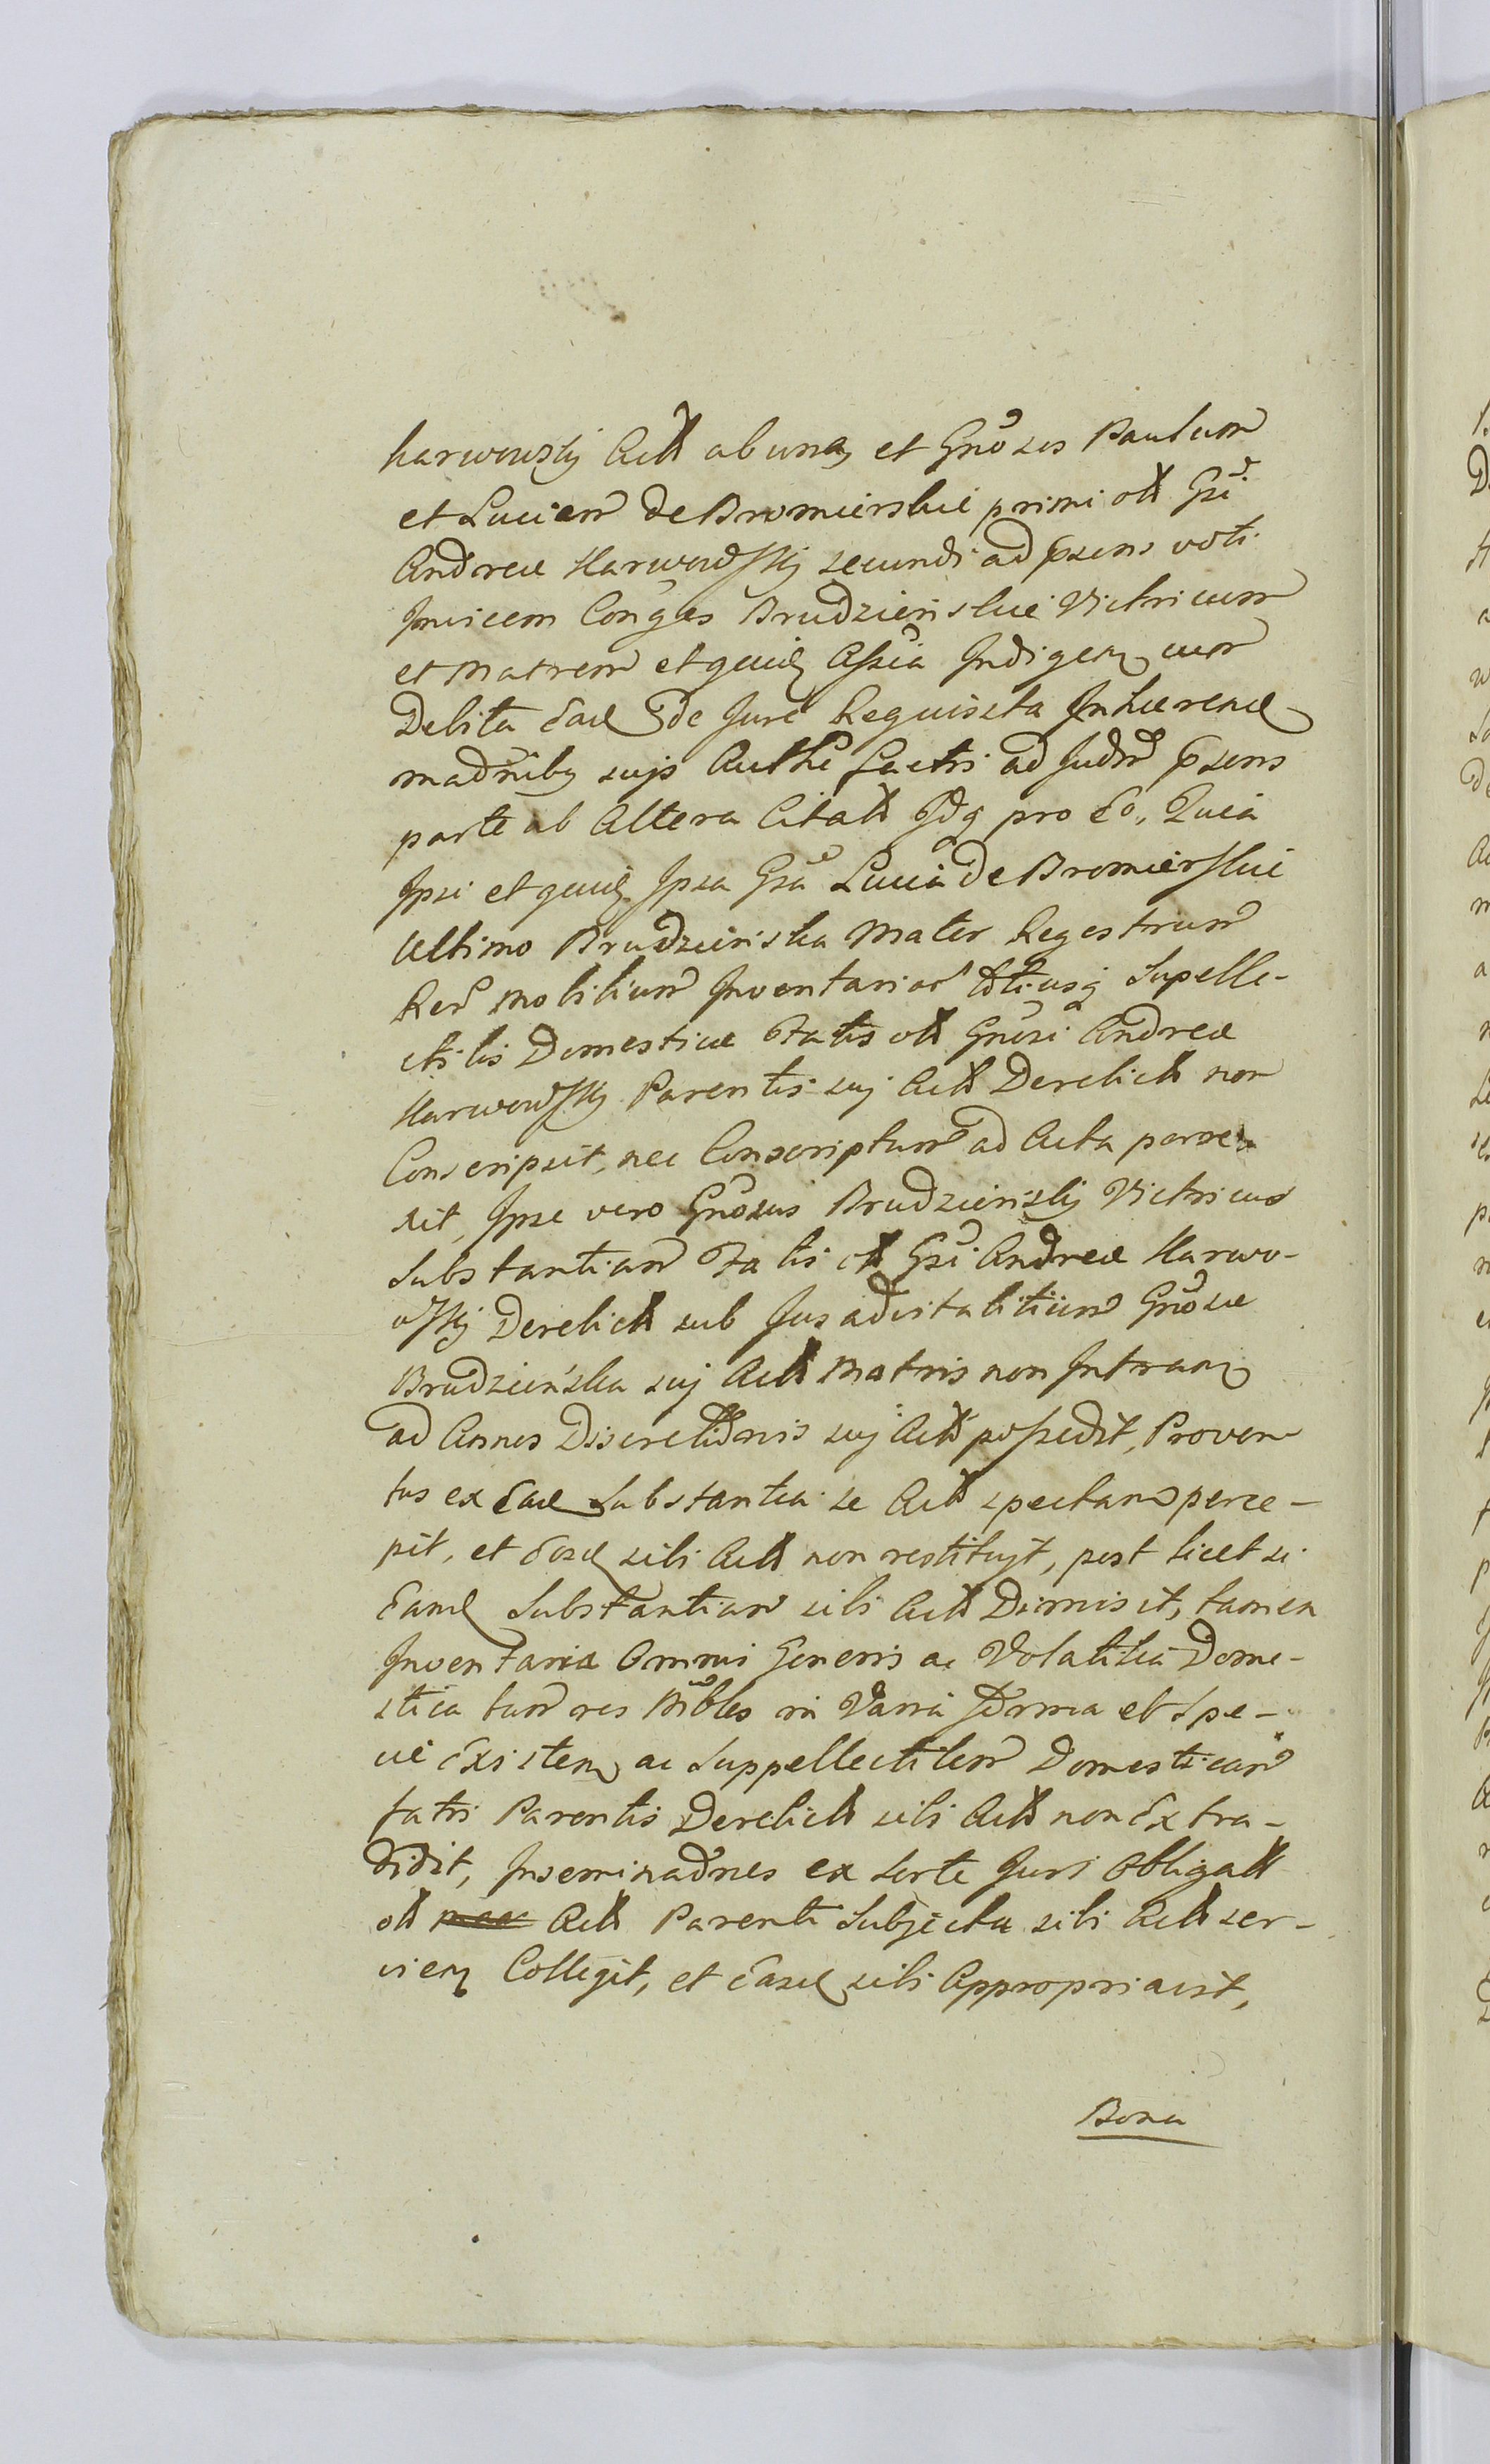 Karwowskij Actt ab una, et Gnosos Paulum
et Luciam de Bromierskie primi ott Gsi
Andreæ Karwowskij secundi ad psens voti
Invicem Conges Brudzienskie Victricum
et Matrem et quid Assia Indigen cum
Debita Ead de Jure Requisita Inhærend
madnibq sujs Authe factis ad Judm psens
parte ab Altera Citatt Idq pro Eo, Quia
Ipsi et quid Ipsa Gsa Lucia de Bromierskie
Ultimo Brudzienska Mater Regestrum
Rerū Mobilium Inventarior totiusq Supelle-
ctilis Domesticæ Fatis ott Gnosi Andreæ
Karwowskij Parentis suj Actt Derelictt non
Conscripsit, nec Conscriptum ad Acta porre-
xit, Ipse vero Gnosus Brudzienskij Victricus
Substantiam Fatis ott Gsi Andreæ Karwo-
wskij Derelictt sub Jus advitalitium Gnosæ
Brudzienska suj Actt Matris non Intran
ad Annos Discretionis suj Actt possedit, Proven-
tus ex Ead Substantia se Actt spectan perce-
pit, et Eosd sibi Actt non restituyt, post licet si
Eamd Substantiam sibi Actt Dimisit, tamen
Inventaria Omnis Generis ac Volatilia Dome-
stica tum res Mbles in Varia Forma et Spe-
cie Existen ac Suppellectilem Domesticam
fatis Parentis Derelictt sibi Actt non Extra-
didit, Inseminadnes ex sorte Juri Obligatt
ott Actt Parenti Subjecta sibi Actt ser-
vien Collegit, et Easd sibi Appropriavit,
Bona